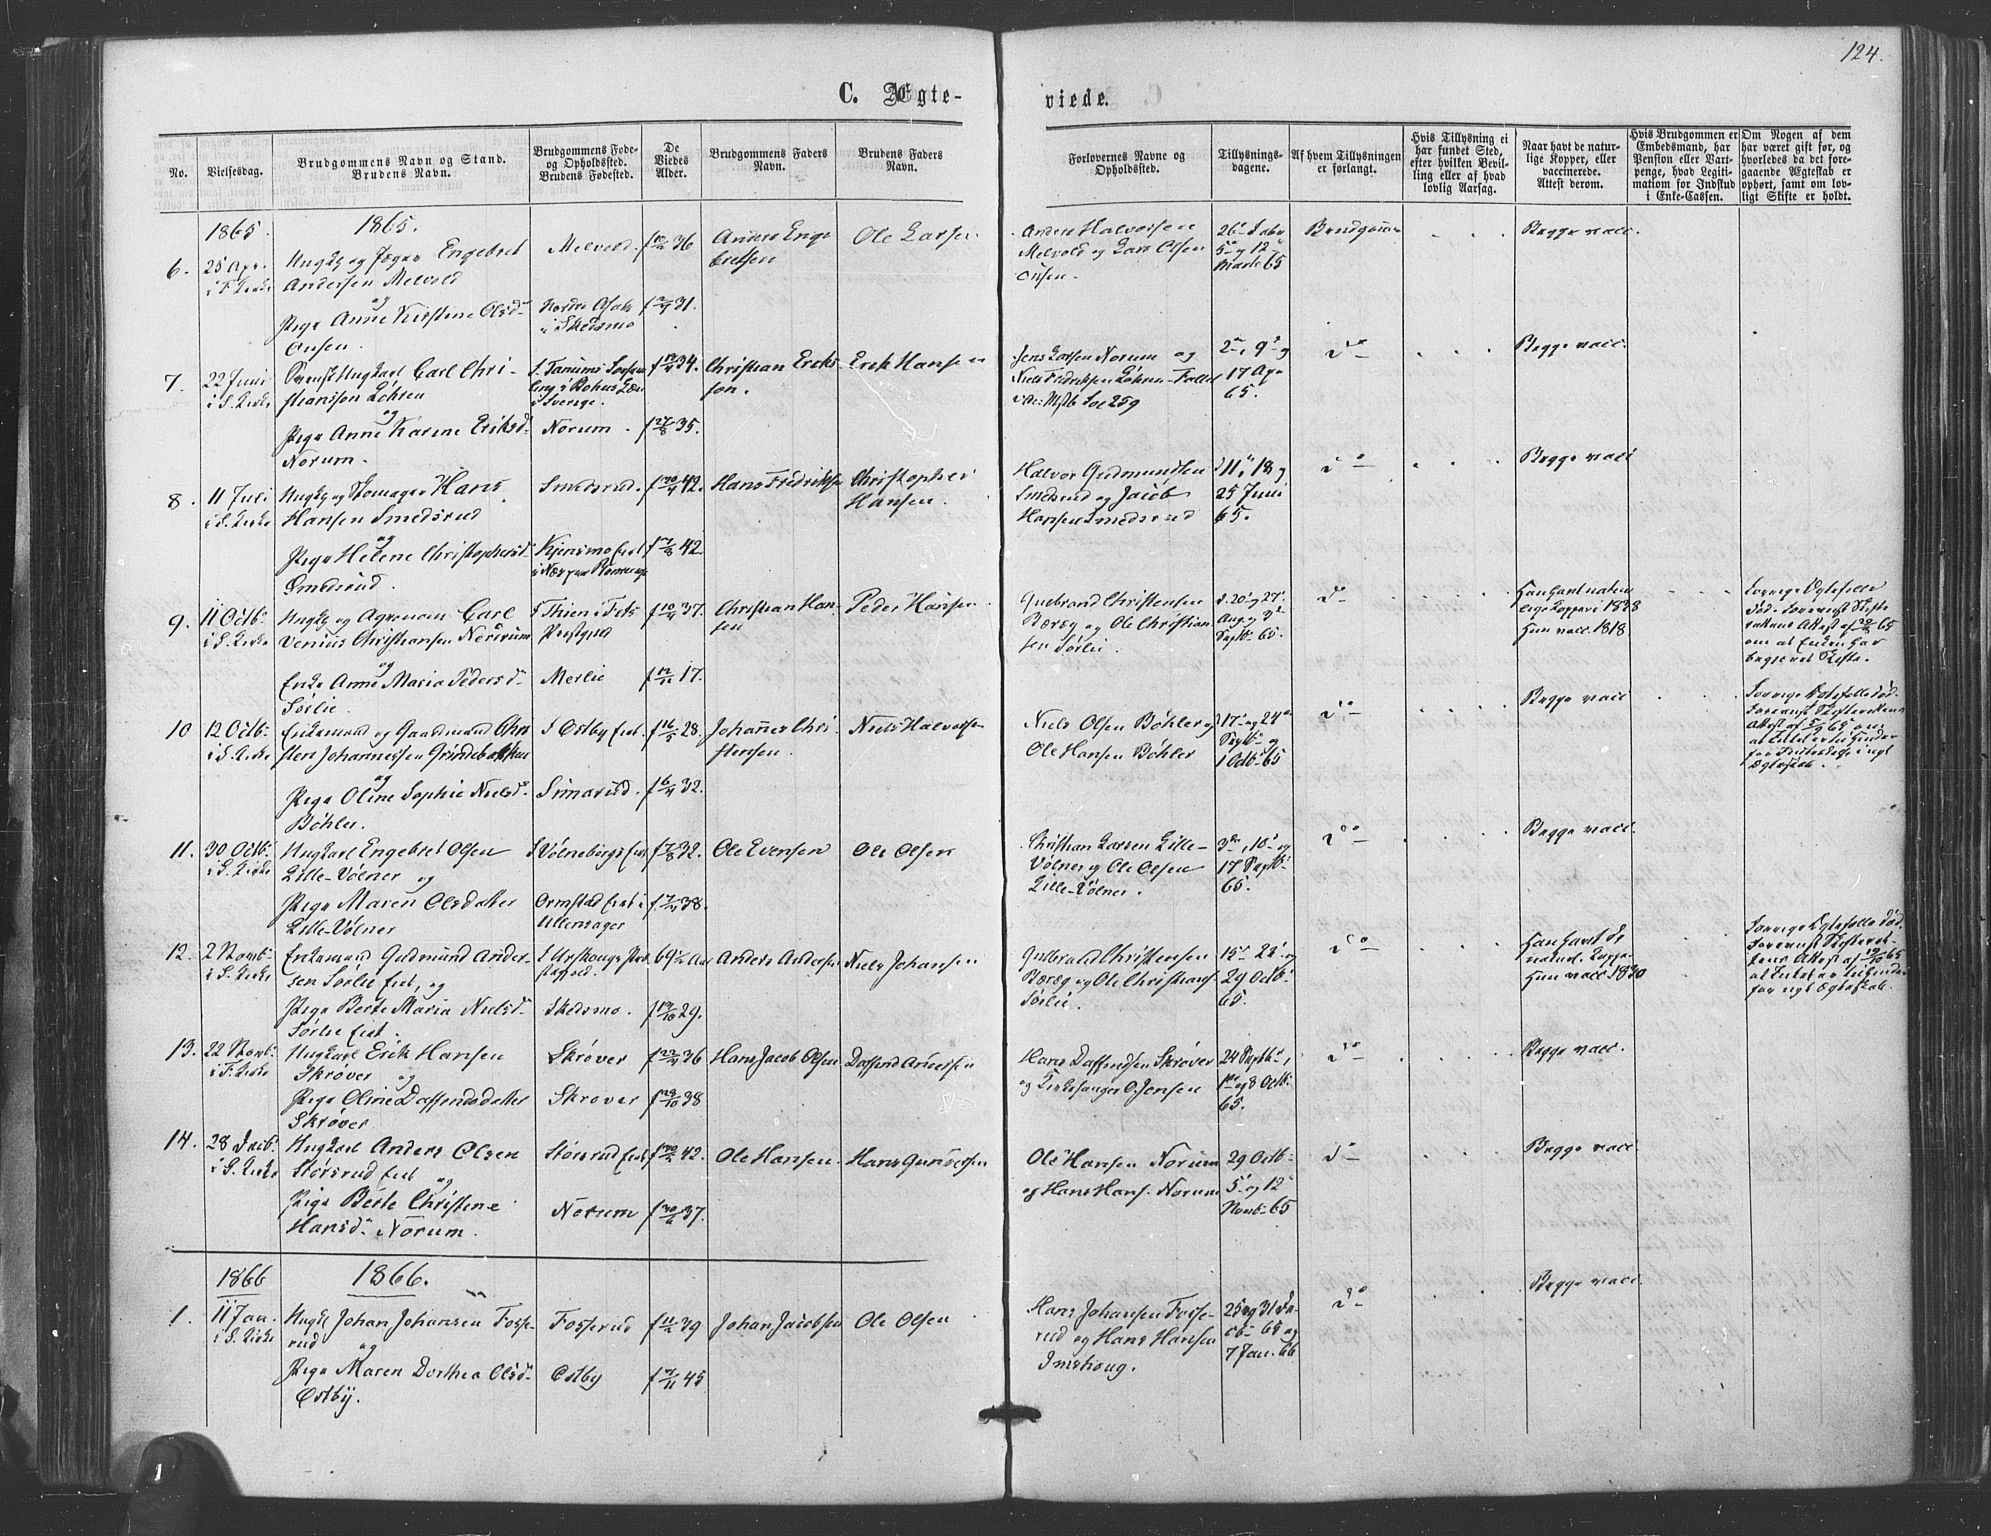 124.
C. Ægte-
viede.
No.
Vielsesdag.
Brudgommens Navn og Stand.
Brudens Navn.
Brudgommens Føde-
og Opholdssted.
Brudens Fødested.
De
Viedes
Alder.
Brudgommens Faders
Navn.
Brudens Faders
Navn.
Forlovernes Navne og
Opholdssted.
Tillysnings-
dagene.
Af hvem Tillysningen
er forlangt.
Hvis Tillysning ei
har fundet Sted,
efter hvilken Bevil-
ling eller af hvad
lovlig Aarsag.
Naar havt de natur-
lige Kopper, eller
vaccinerede.
Attest derom.
Hvis Brudgommen er
Embedsmand, har
Pension eller Vart-
penge, hvad Legiti-
mation for Indskud
i Enke-Cassen.
Om Nogen af dem
har været gift før, og
hvorledes da det fore-
gaaende Ægteskab er
ophørt, samt om lov-
ligt Skifte er holdt.
1865.
1865.
6.
25 Apr.
i F. Kirke
Ungkg og Jæger Engebret
Andersen Melvold
og
Pige Anne Kirstine Olsd
Onsen.
Melvold
Nordre Asak
i Skedsmo
36
31.
Anders Enge
bretsen
Ole Larsen
Anders Halvorsen
Melvold og Lars Olsen
Onsen.
26 Febr
5 og 12
Marts 65
Brudgommen
Begge vacc.
7.
22 Juni
i S. Kirke
Svensk Ungkarl Carl Chri-
stiansson Löken
og
Pige Anne Karine Eriksd
Norum.
i Bohus Len
i Sverige.
Norum.
34.
f 27/8 35.
Christian Ericks-
son.
Erik Hansen
Jens Larsen Norum og
2, 9 og
17 Apr
65.
do
Begge vacc.
8.
11 Juli
i S. Kirke
Ungkg og Skomager Hans
Hansen Smedsrud
og
Pige Helene Christophersd
Smedsrud.
Smedsrud.
42.
42.
Hans Fredriksen
Christopher
Hansen.
Halvor Gudmundsen
Smedsrud og Jacob
Hansen Smedsrud
11, 18 og
25 Juni
65.
do
Begge vacc
9.
11 Octb.
i S. Kirke
Ungkg og Agronom Carl
Venius Christiansen Nordrum
og
Enke Anne Maria Pedersd
Sørlie.
i Fets
Præstgjeld
Merlie
37.
17.
Christian Han-
sen
Peder Hansen
Gulbrand Christensen
Berg og Ole Christian-
sen Sørlie.
20 og 27
Aug. og 3
Septb. 65.
do
Han havt natur
lige Kopper i 1838
Hun vacc. 1818.
Forrige Ægtefælle
død. Foreviist Skifte
rettens Attest af 65
om at Enken har
begjæret Skifte.
10
12 Octb.
i S. Kirke
Enkemand og Gaardmand Chri
sten Johannessen Grindebakken
og
Pige Oline Sophie Nielsd
Bøhler.
Østby Eie
Simarud.
28.
32.
Johannes Chri
stensen.
Niels Halvorsen
Niels Olsen Bøhler og
Ole Hansen Bøhler
17 og 24
Septb. og
1 Octb. 65
do
Begge vacc
Forrige Ægtefælle død.
Foreviist Skifterettens
Attest af 65 om
Ægteskab.
11.
30 Octb.
i S. Kirke
Ungkarl Engebret Olsen
Lille-Vølner og
Pige Maren Olsdatter
Lille-Vølner
Ormstad Eie i
Ullensager
32.
38.
Ole Evensen
Ole Olsen
Christian Larsen Lille-
Vølner og Ole Olsen
Lille-Vølner.
3, 10 og
17 Septb.
65.
do
Begge vacc.
12.
2 Novb.
i S. Kirke
Enkemand Gudmund Ander-
sen Sørlie Eie, og
Pige Berte Maria Nielsd
Sørlie Eie.
i Urskougs Præ
stegjeld.
Skedsmo.
69½ Aar
f 19/10 29.
Anders Andersen
Niels Johansen
Gulbrand Christensen
Berg og Ole Christians
Sørlie.
15 22 og
29 Octb.
65.
do
Han havt de
naturl. Kopper
Hun vacc. 1830
Forrige Ægtefælle død.
Foreviist Skifteret-
tens Attest af 65
for nyt Ægteskab.
13.
22 Novb.
i F. Kirke
Ungkarl Erik Hansen
Skrøver og
Pige Oline Daffindsdatter
Skrøver
Skrøver
Skrøver
36
38
Hans Jacob Olsen
Daffind Andersen
Hans Daffindsen Skrøver
og Kirkesanger O. Jensen
24 Septb.,
1 og 8 Octb.
65.
do
Begge vacc.
14.
28 Decb.
i S. Kirke
Ungkarl Anders Olsen
Storsrud Eie og
Pige Berte Christine
Hansd. Norum.
Storsrud Eie
Norum
42.
37.
Ole Hansen.
Hans Gundersen
Ole Hansen Norum
og Hans Hans. Norum
29 Octb.
5 og 12
Novb. 65
do
Begge vacc
1866
1866.
1.
11 Jan.
i S. Kirke
Ungk Johan Johansen Fosse-
rud og
Pige Maren Dorthea Olsd
Østby.
Fosserud
Østby
39
45
Johan Jacobsen
Ole Olsen
Hans Johansen Fosse-
rud og Hans Hansen
Imshaug.
25 og 31 De-
cb. 65 og
7 Jan. 66
do
Begge vacc.